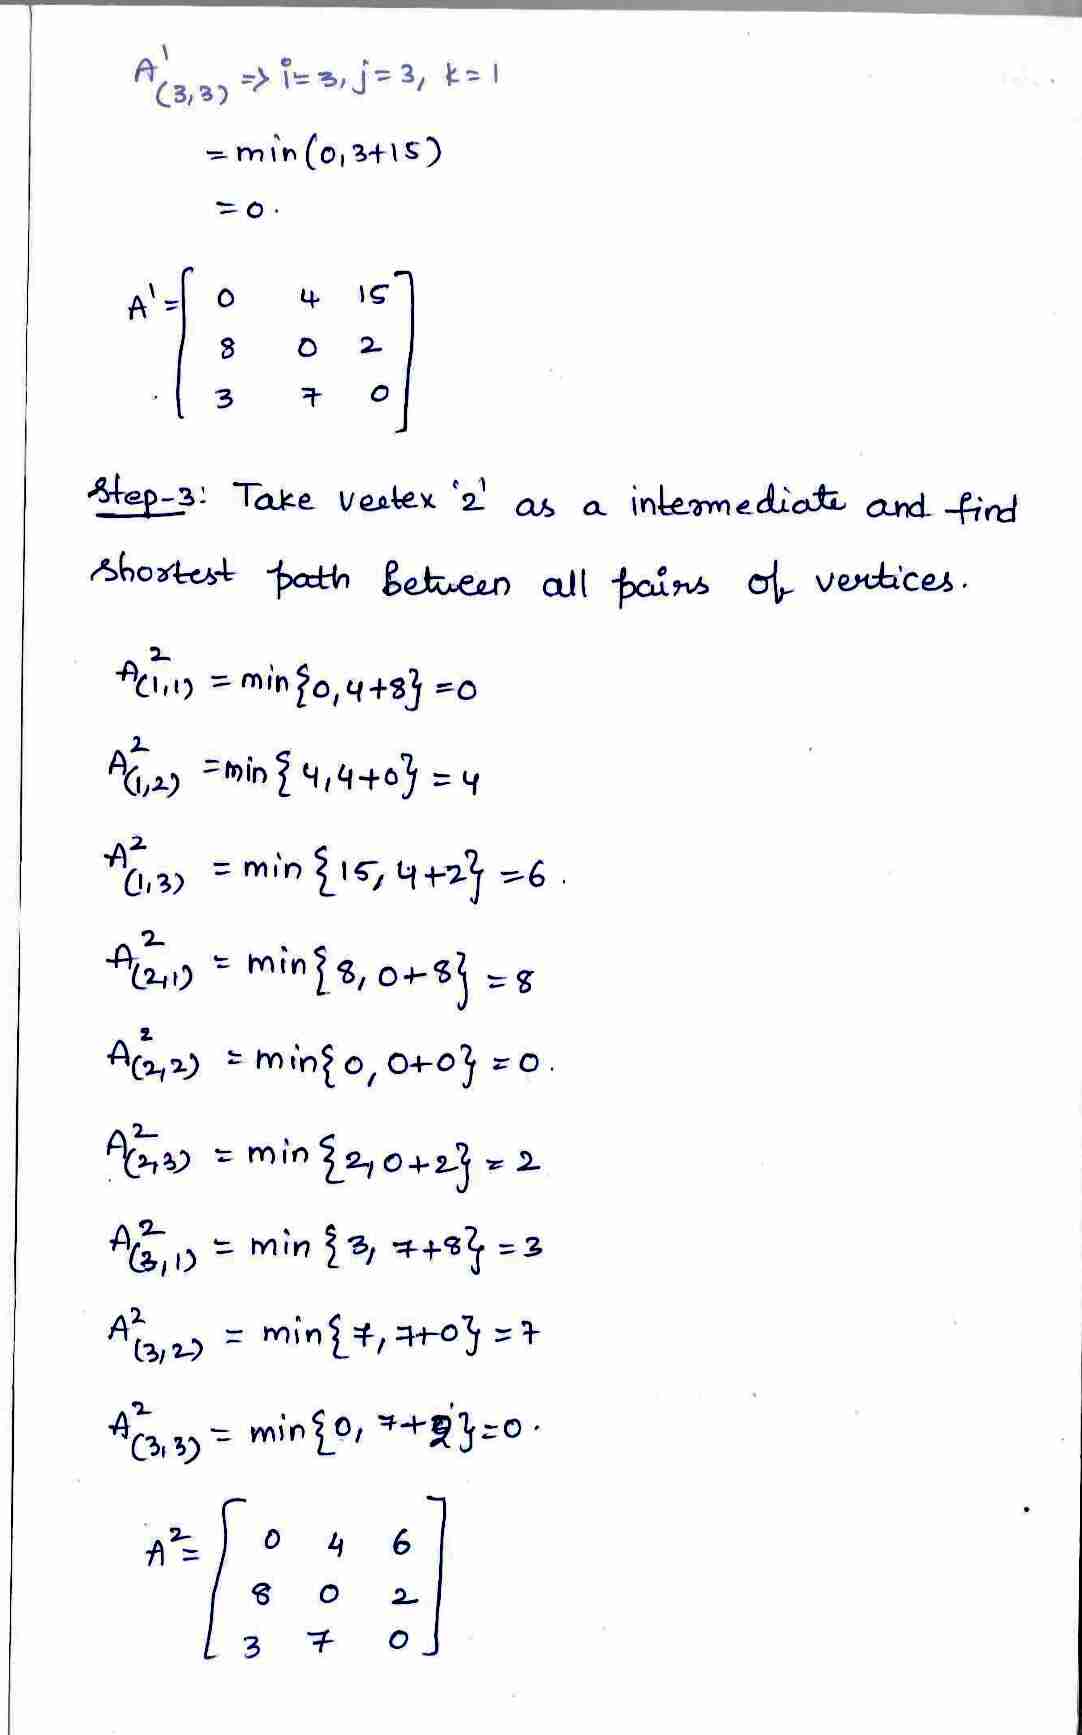 A¹(3,3) => i=3, j=3, k=1
=min(0,3+15)
=0.
A¹=[ 0 4 15
8 0 2
3 7 0 ]
Step-3: Take vertex '2' as a intermediate and find
shortest path Between all pairs of vertices.
A²(1,1) = min{0,4+8} =0
A²(1,2) =min{4,4+0} = 4
A²(1,3) = min{15, 4+2} =6.
A²(2,1) = min{8, 0+8} =8
A²(2,2) = min{0, 0+0} =0.
A²(2,3) = min{2,0+2} =2
A²(3,1) = min{3, 7+8} =3
A²(3,2) = min{7,7+0} =7
A²(3,3) = min{0, 7+2}=0.
A²=[ 0 4 6
8 0 2
3 7 0 ]